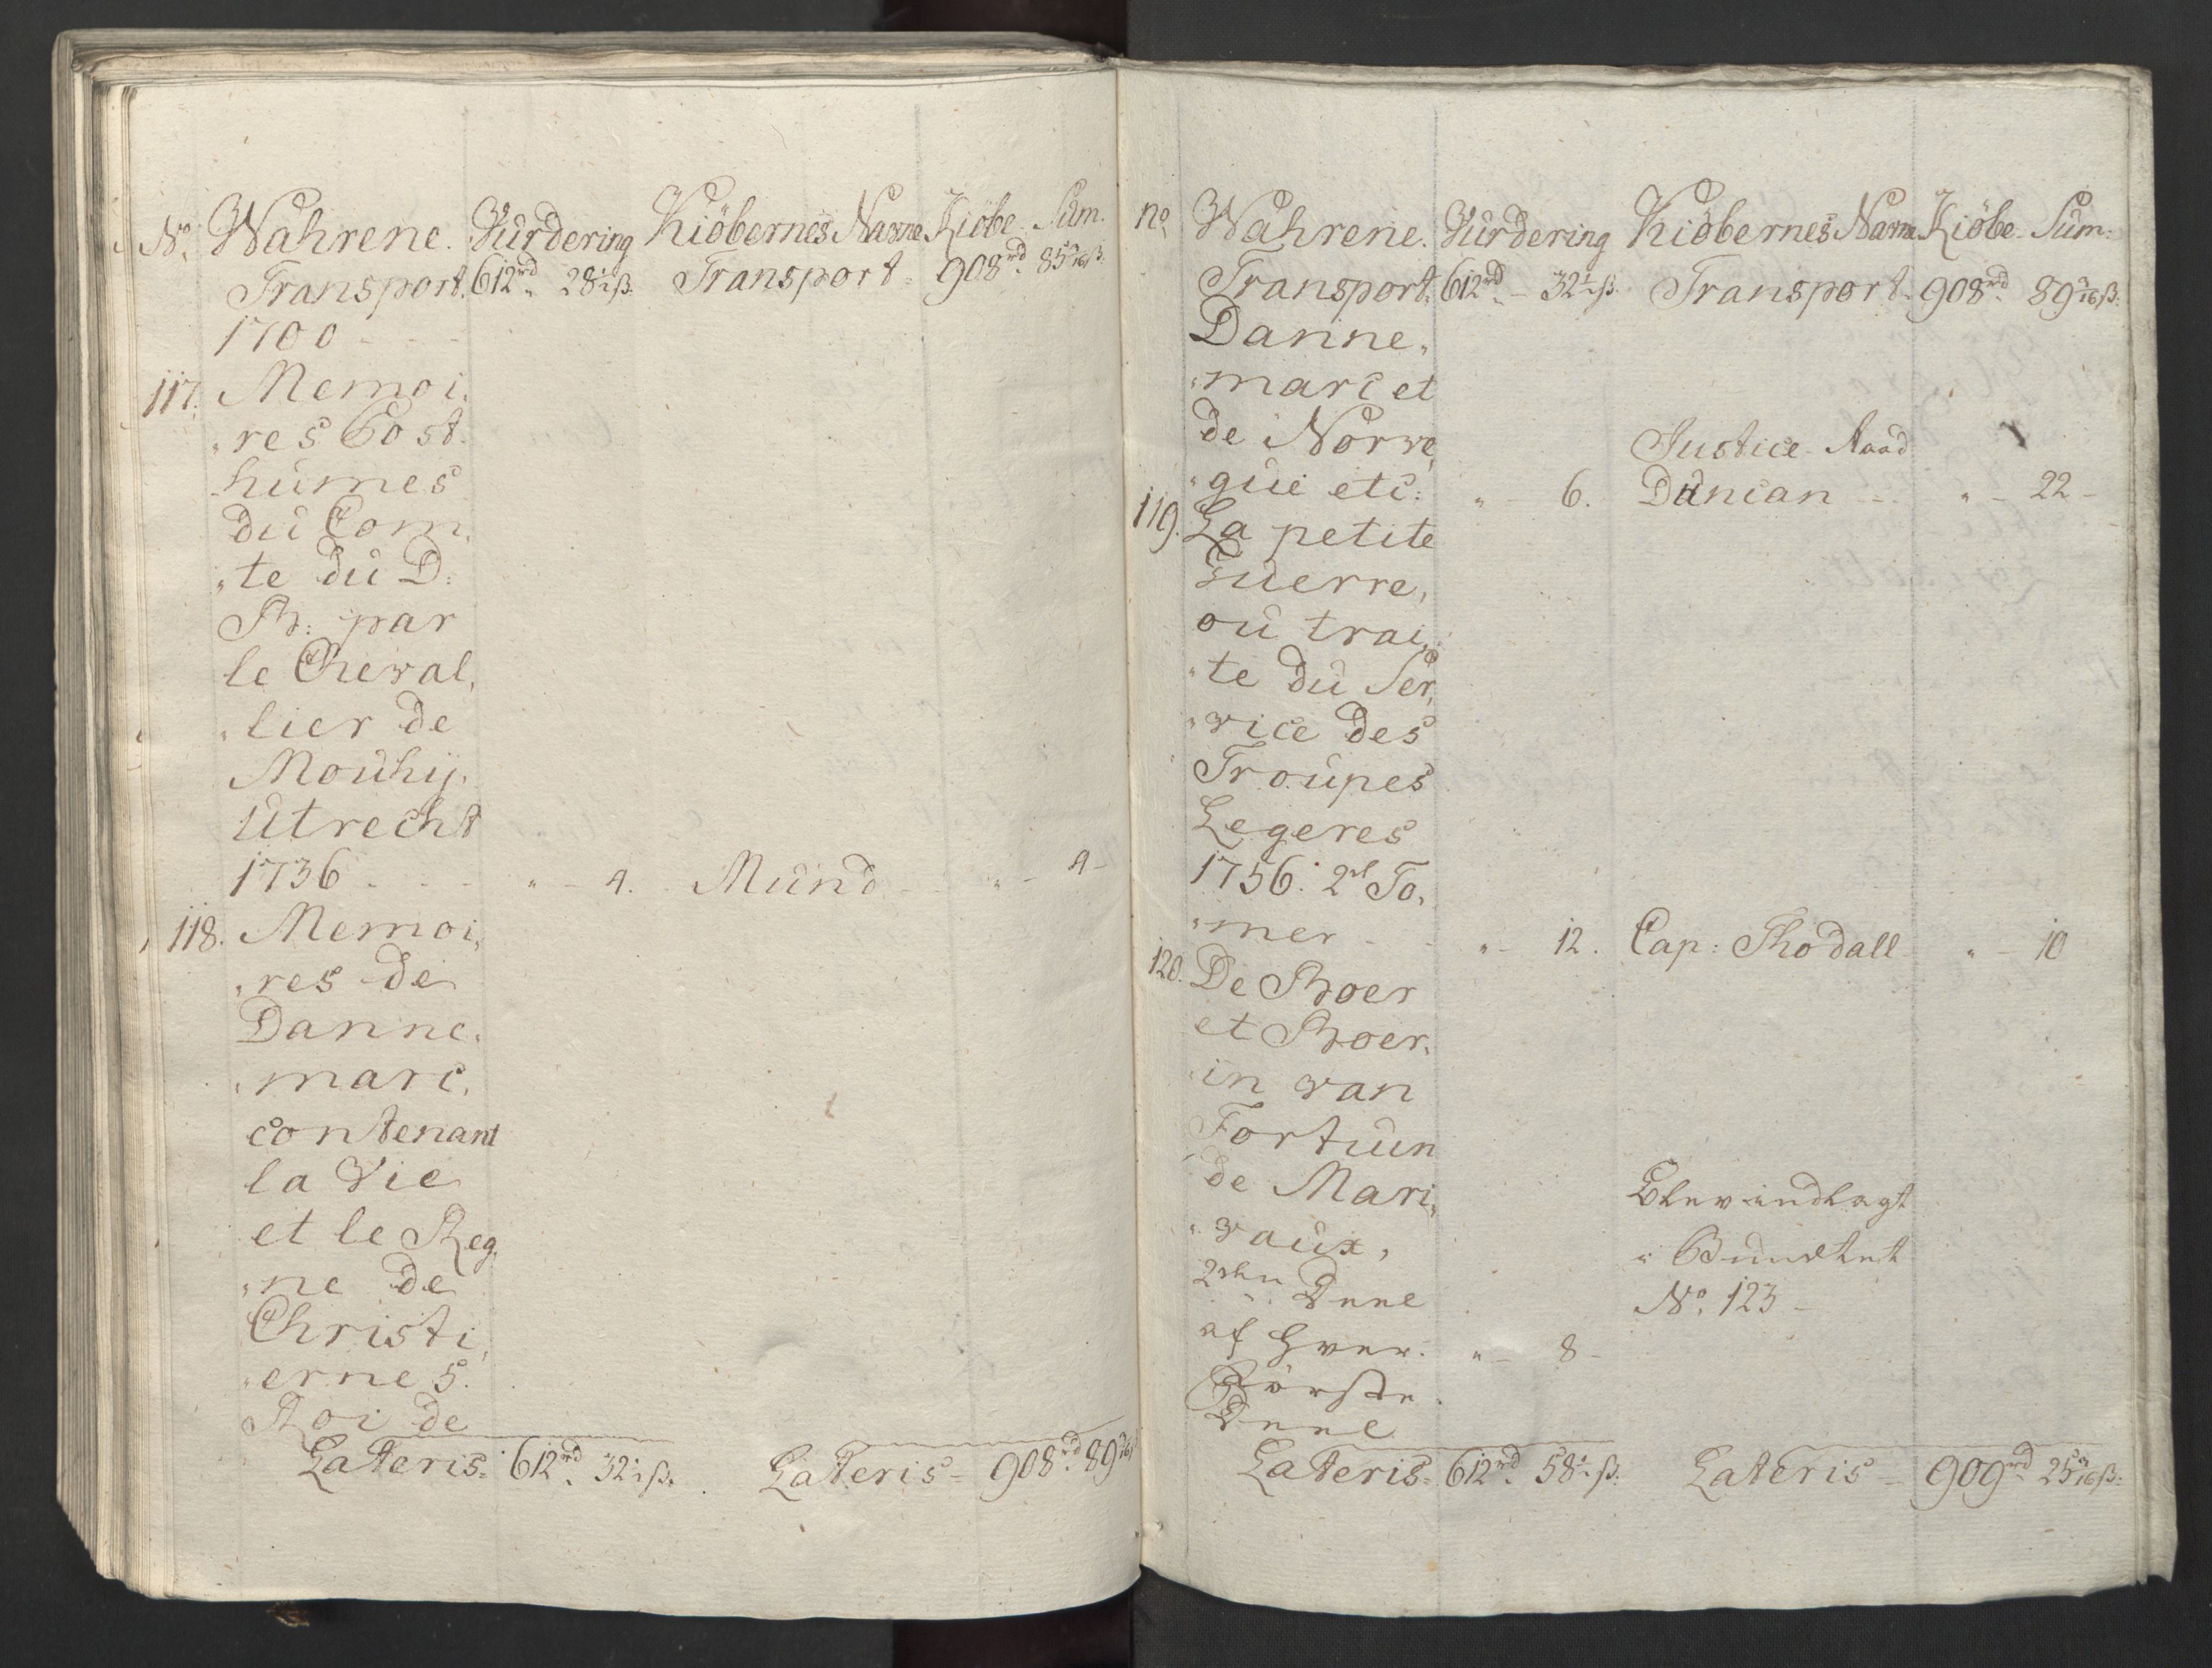 No. Wahrene. Vurdering Kiöbernes Navne Kiöbe Sum.
Transport. 612rd. 28½ß. Transport - 908rd. 85 9/16ß.
1700 - - -
117. Memoi,
"res Post-
humes
du Com,
"te du D:
R: par
le Cheval,
"lier de
Mouhÿ.
Utrecht
1736 - - - " - 4. Mund - " - 4 -
118. Memoi,
"res de
Danne,
"marc,
contenant
la Vie
et le Reg,
"ne de
Christi,
"erne 5.
Roi de
Lateris. 612rd. 32½ß. Lateris - 908rd. 89 9/16
no. Wahrene. Vurdering Kiöbernes Navne Kiöbe Sum:
Transport. 612rd. - 32½ß. Transport - 908rd. 89 9/16ß.
Danne,
"marc et
de Norve,
"gue etc: " - 6. Justice Raad
Duncan - " - 22 -
119. La petite
Guerre,
ou trai,
"te du Ser,
"vice des
Troupes
Legeres
1756. 2de To,
"mer - - " - 12. Cap: Thodall " - 10
120. De Boer
et Boer,
in van
Fortuun
de Mari,
"vaux,
2den Deel
af hver. " - 8 -
Förste
Deel
Blev indlagt
i Bundtet
No. 123 -
Lateris. 612rd. 58½ß. Lateris - 909rd. 25 9/16ß.